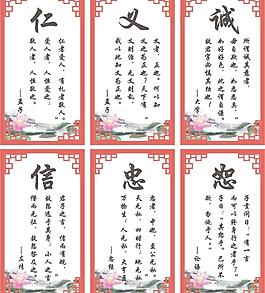 仁
仁者爱人，有礼者敬人。
爱人者，人恒爱之；
敬人者，人恒敬之。
—孟子
义
义者，正也。何以知
义之为正也？天下有
义则治，无义则乱，
我以此知义之为正也。
—墨子
诚
所谓诚其意者，
毋自欺也，如恶恶臭，
如好好色，此之谓自谦，
故君子必慎其独也！
—大学
信
君子之言，信而有征，
故怨远于其身；小人之言，
僭而无征，故怨咎及之。
—左传
忠
忠者，中也，至公无私。
天无私，四时行；地无私，
万物生；人无私，大亨贞。
—忠经
恕
子贡问曰：“有一言
而可以终身行之者乎？”
子曰：“其恕乎！己所不
欲，勿施于人。”
—论语